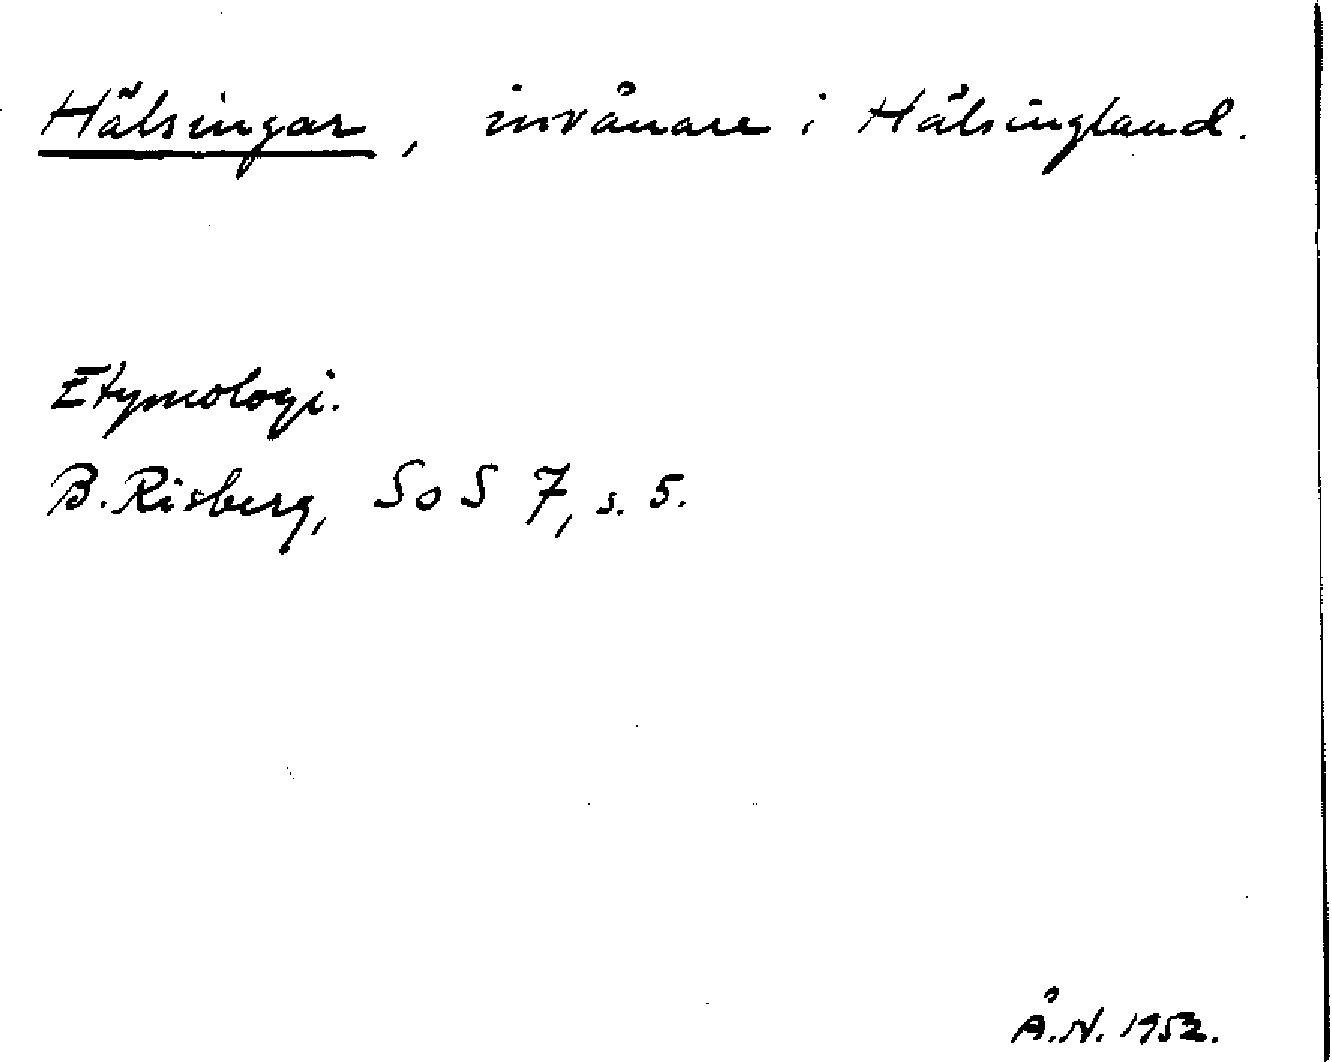 Hälsingar, invånare i Hälsingland.
Etymologi.
B. Risberg, SoS 7, s. 5.
Å.N. 1952.